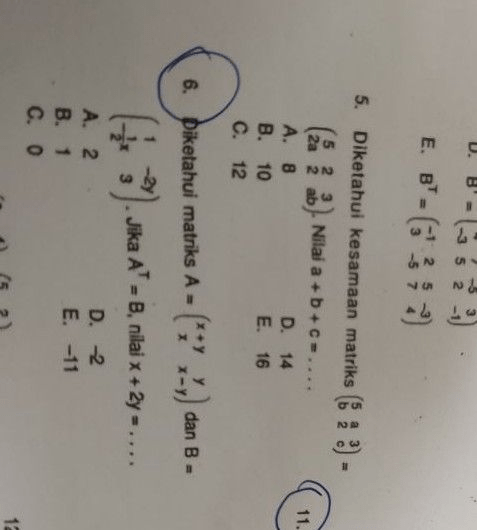 D. Bᵀ = (4 7 -5 3
-3 5 2 -1)
E. Bᵀ = (-1 2 5 -3
3 -5 7 4)
5. Diketahui kesamaan matriks (5 a 3
b 2 c) =
(5 2 3
2a 2 ab). Nilai a + b + c = . . . .
A. 8 D. 14
B. 10 E. 16
C. 12
6. Diketahui matriks A = (x + y y
x x – y) dan B =
(1 -2y
-½x 3). Jika Aᵀ = B, nilai x + 2y = . . . .
A. 2 D. –2
B. 1 E. –11
C. 0
11.